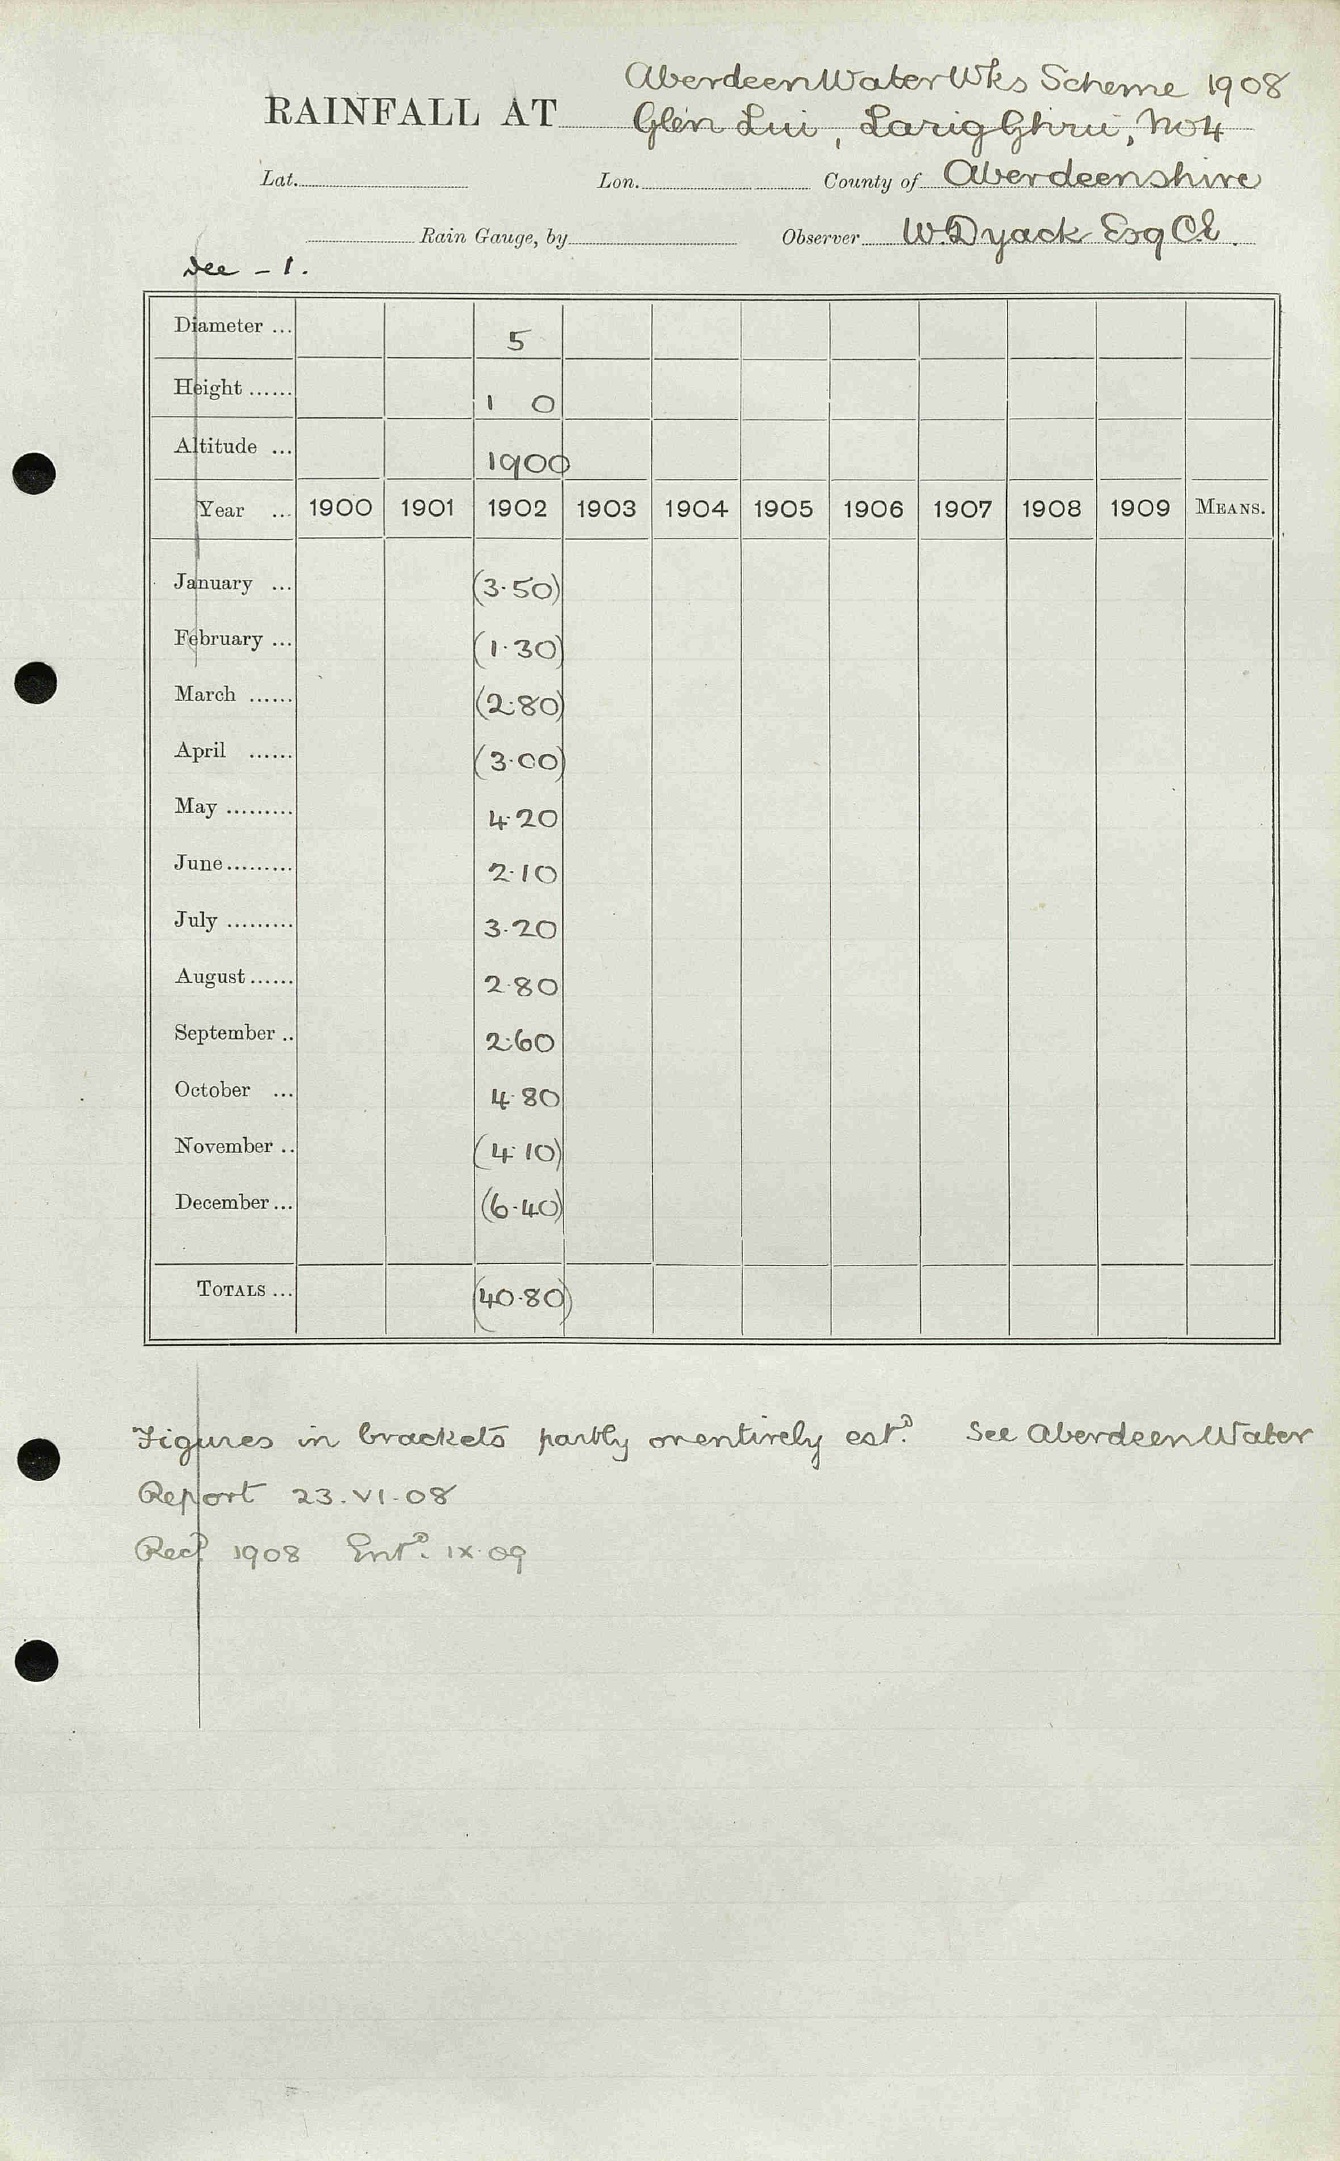 Aberdeen Water Wks Scheme 1908
RAINFALL AT Glen Lui, Larig Ghru, No 4
Lat. Lon. County of Aberdeenshire
Rain Gauge, by Observer W. Dyack Esq CE.
Dee - 1.
Diameter ... 5
Height ...... 1 0
Altitude ... 1900
Year ... 1900 1901 1902 1903 1904 1905 1906 1907 1908 1909 MEANS.
January ... (3.50)
February ... (1.30)
March ...... (2.80)
April ...... (3.00)
May ......... 4.20
June ......... 2.10
July ......... 3.20
August ...... 2.80
September .. 2.60
October ... 4.80
November .. (4.10)
December ... (6.40)
TOTALS ... (40.80)
Figures in brackets partly or entirely estd. See Aberdeen Water
Report 23.VI.08
Recd. 1908 Entd. IX.09